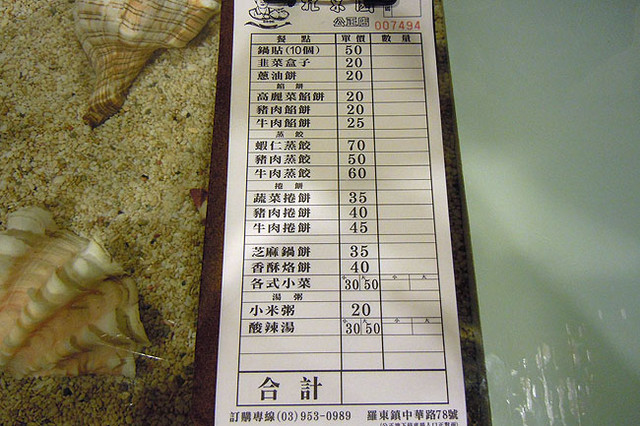 公正店
007494
餐點 單價 數量
鍋貼(10個) 50
韭菜盒子 20
蔥油餅 20
餡餅
高麗菜餡餅 20
豬肉餡餅 20
牛肉餡餅 25
蒸餃
蝦仁蒸餃 70
豬肉蒸餃 50
牛肉蒸餃 60
捲餅
蔬菜捲餅 35
豬肉捲餅 40
牛肉捲餅 45
芝麻鍋餅 35
香酥烙餅 40
各式小菜 小30 大50 小 大
湯粥
小米粥 20
酸辣湯 小30 大50 小 大
合計
訂購專線(03)953-0989 羅東鎮中華路78號